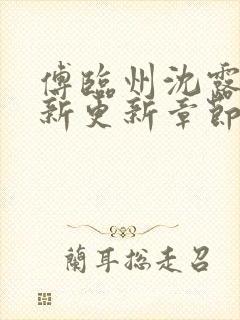 傅臨州沈露
新更新章節
蘭耳総走召